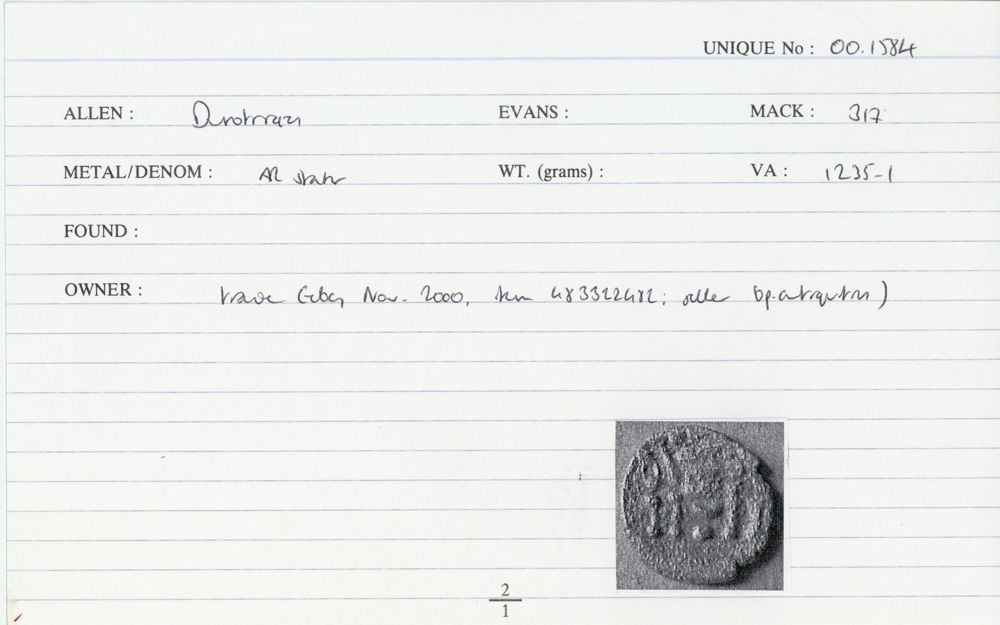 UNIQUE No : 00.1584
ALLEN : Durotrigan EVANS : MACK : 317
METAL/DENOM : AR stater WT. (grams) : VA : 1235-1
FOUND :
OWNER : trade Ebay Nov. 2000, item 483322482; seller bp.antiquities)
2
1